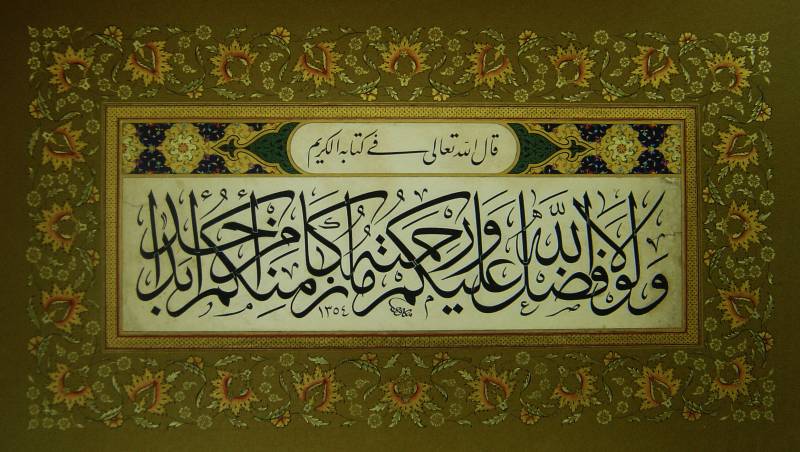 قال الله تعالى في كتابه الكريم
ولولا فضل الله عليكم ورحمته ما زكا منكم من أحد أبدا
١٣٥٤